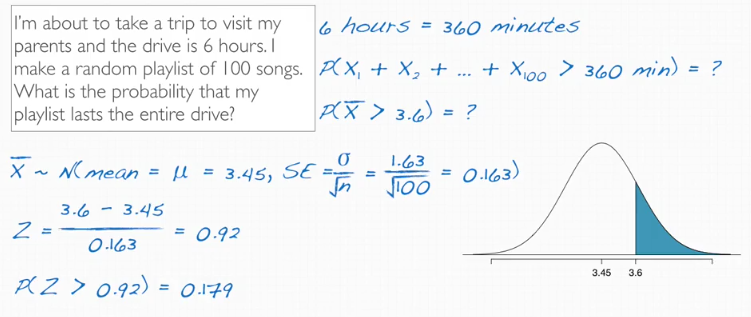 I'm about to take a trip to visit my
parents and the drive is 6 hours. I
make a random playlist of 100 songs.
What is the probability that my
playlist lasts the entire drive?
6 hours = 360 minutes
P(X₁ + X₂ + ... + X₁₀₀ > 360 min) = ?
P(X̅ > 3.6) = ?
X̅ ~ N(mean = μ = 3.45, SE = σ/√n = 1.63/√100 = 0.163)
Z = (3.6 - 3.45)/0.163 = 0.92
P(Z > 0.92) = 0.179
3.45 3.6